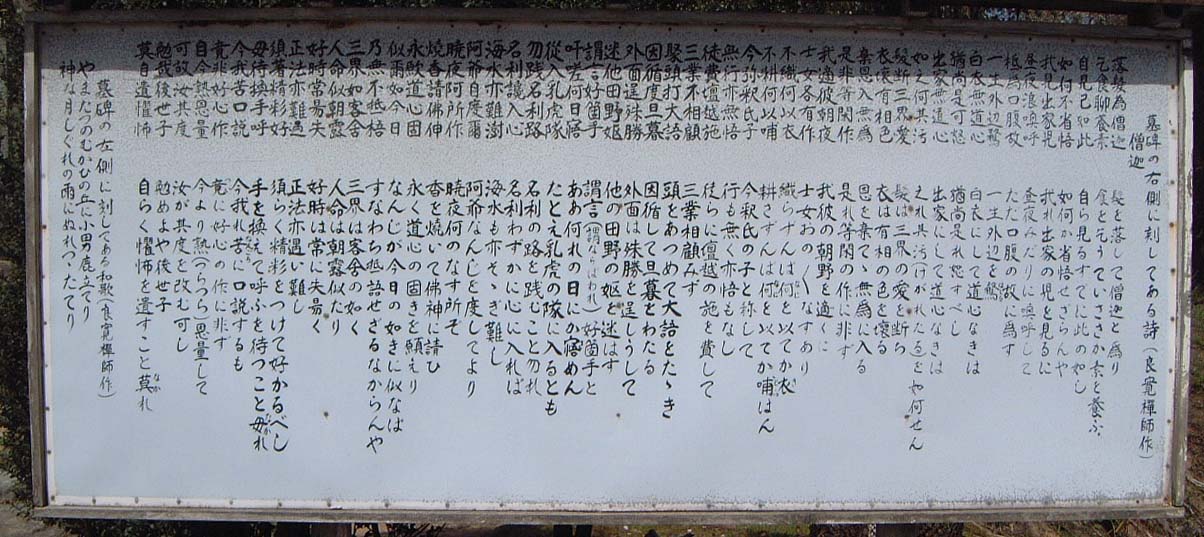 墓碑の右側に刻してある詩(良寛禅師作)
僧迦
落髪為僧迦
乞食聊養素
自見已如此
如何不省悟
我見出家児
昼夜浪喚呼
祗為口腹故
一生外辺鶩
白衣無道心
猶尚是可恕
出家無道心
如之何其汚
髪断三界愛
衣壊有相色
棄恩入無為
是非等閑作
我適彼朝夜
士女各有作
不織何以衣
不耕何以哺
今弥釈氏子
無行亦無悟
徒費壇越施
三業不相顧
聚頭打大語
因循度旦暮
外面逞殊勝
迷他田野嫗
謂言好箇手
吁嗟何日寤
従入乳虎隊
勿践名利路
名利纔入心
海水亦難澍
阿爺自度爾
暁夜何所作
焼香請佛神
永願道心固
似爾如今日
乃無不抵梧
三界如客舎
人命似朝露
好時常易失
正法亦難遇
須著精彩好
毋待換手呼
今我苦口説
竟非好心作
自今熟思量
可改汝其度
勉哉後世子
莫自遺懼怖
髪を落して僧迦と為り
食を乞うていささか素を養ふ
自ら見るすでに此の如し
如何が省悟せざらんや
我れ出家の児を見るに
昼夜みだりに喚呼して
ただ口腹の故に為す
一生外辺を鶩
白衣にして道心なきは
猶尚是れ恕すべし
出家にして道心なきは
之れ其汚けがれたるを如何せん
髪は三界の愛を断ち
衣は有相の色を壊る
恩を棄てゝ無為に入る
是れ等閑の作に非ず
我彼の朝野を適くに
士女おの〱なすあり
織らずんば何を以てか衣
耕さずんば何を以てか哺はん
今釈氏の子と称して
行も無く亦悟もなし
徒らに壇越の施を費して
三業相顧みず
頭をあつめて大語をたゝき
因循して旦暮をわたる
外面は殊勝を逞しうして
他の田野の嫗を迷はす
謂言(謂ならはわれ)好箇手と
ああ何れの日にか寤めん
たとえ乳虎の隊に入るとも
名利の路を践むこと勿れ
名利わずかに心に入れば
海水も亦そゝぎ難し
阿爺なんじを度してより
暁夜何のなす所ぞ
香を焼いて佛神に請ひ
永く道心の固きを願えり
なんじが今日の如きに似なば
すなわち抵語せざるなからんや
三界は客舎の如く
人命は朝露に似たり
好時は常に失易く
正法亦遇い難し
須らく精彩をつけて好かるべし
手を換えて呼ふを待つこと毋れ
今我れ苦に口説するも
竟に好心の作に非ず
今より熟(つらつら)思量して
汝が其度を改む可し
勉めよや後世子
自らく懼怖を遺すこと莫れ
墓碑の左側に刻してある和歌(良寛禅師作)
やまたづのむかひの丘に小田鹿立てり
神な月しぐれの雨にぬれつゝたてり